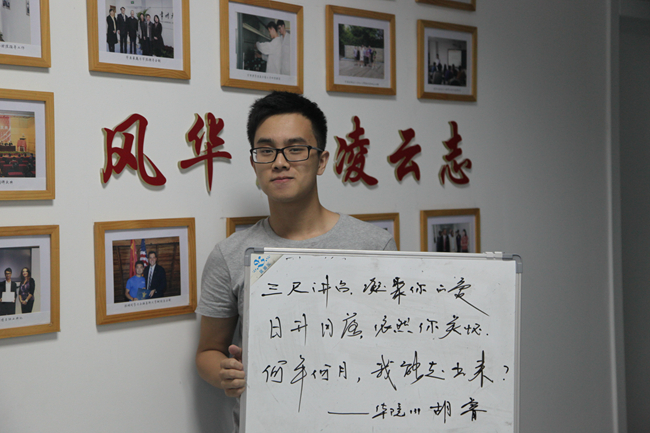 风华 凌云志
三尺讲台，凝聚你的爱
日升月落，依然你关怀.
何年何月，我能走出来？
——华院 胡睿